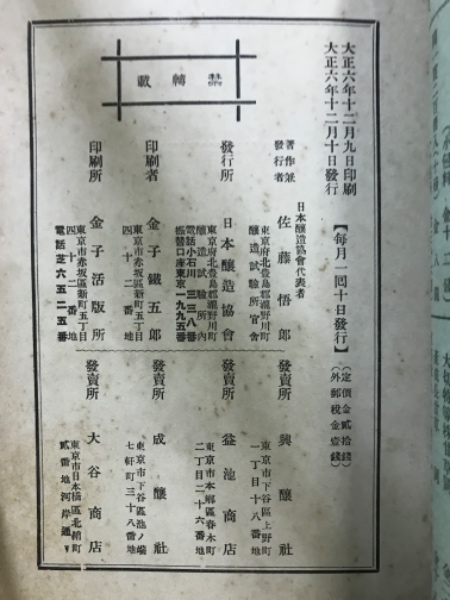 大正六年十二月九日印刷
大正六年十二月十日發行
【每月一囘十日發行】
(定價金貳拾錢)
(外郵稅金壹錢)
禁轉載
日本釀造協會代表者
著作兼發行者
佐藤悟郎
東京府北豊島郡瀧野川町
釀造試驗所官舍
發行所
日本釀造協會
東京府北豊島郡瀧野川町
釀造試驗所內
電話小石川三三八番
振替口座東京一九九五番
印刷者
金子鐵五郎
東京市赤坂區新町五丁目
四十二番地
印刷所
金子活版所
東京市赤坂區新町五丁目
四十二番地
電話芝六五二五番
發賣所
興釀社
東京市下谷區上野町
一丁目十八番地
發賣所
益池商店
東京市本鄕區春木町
二丁目二十六番地
發賣所
成釀社
東京市下谷區池ノ端
七軒町三十八番地
發賣所
大谷商店
東京市日本橋區北鞘町
貳番地河岸通リ